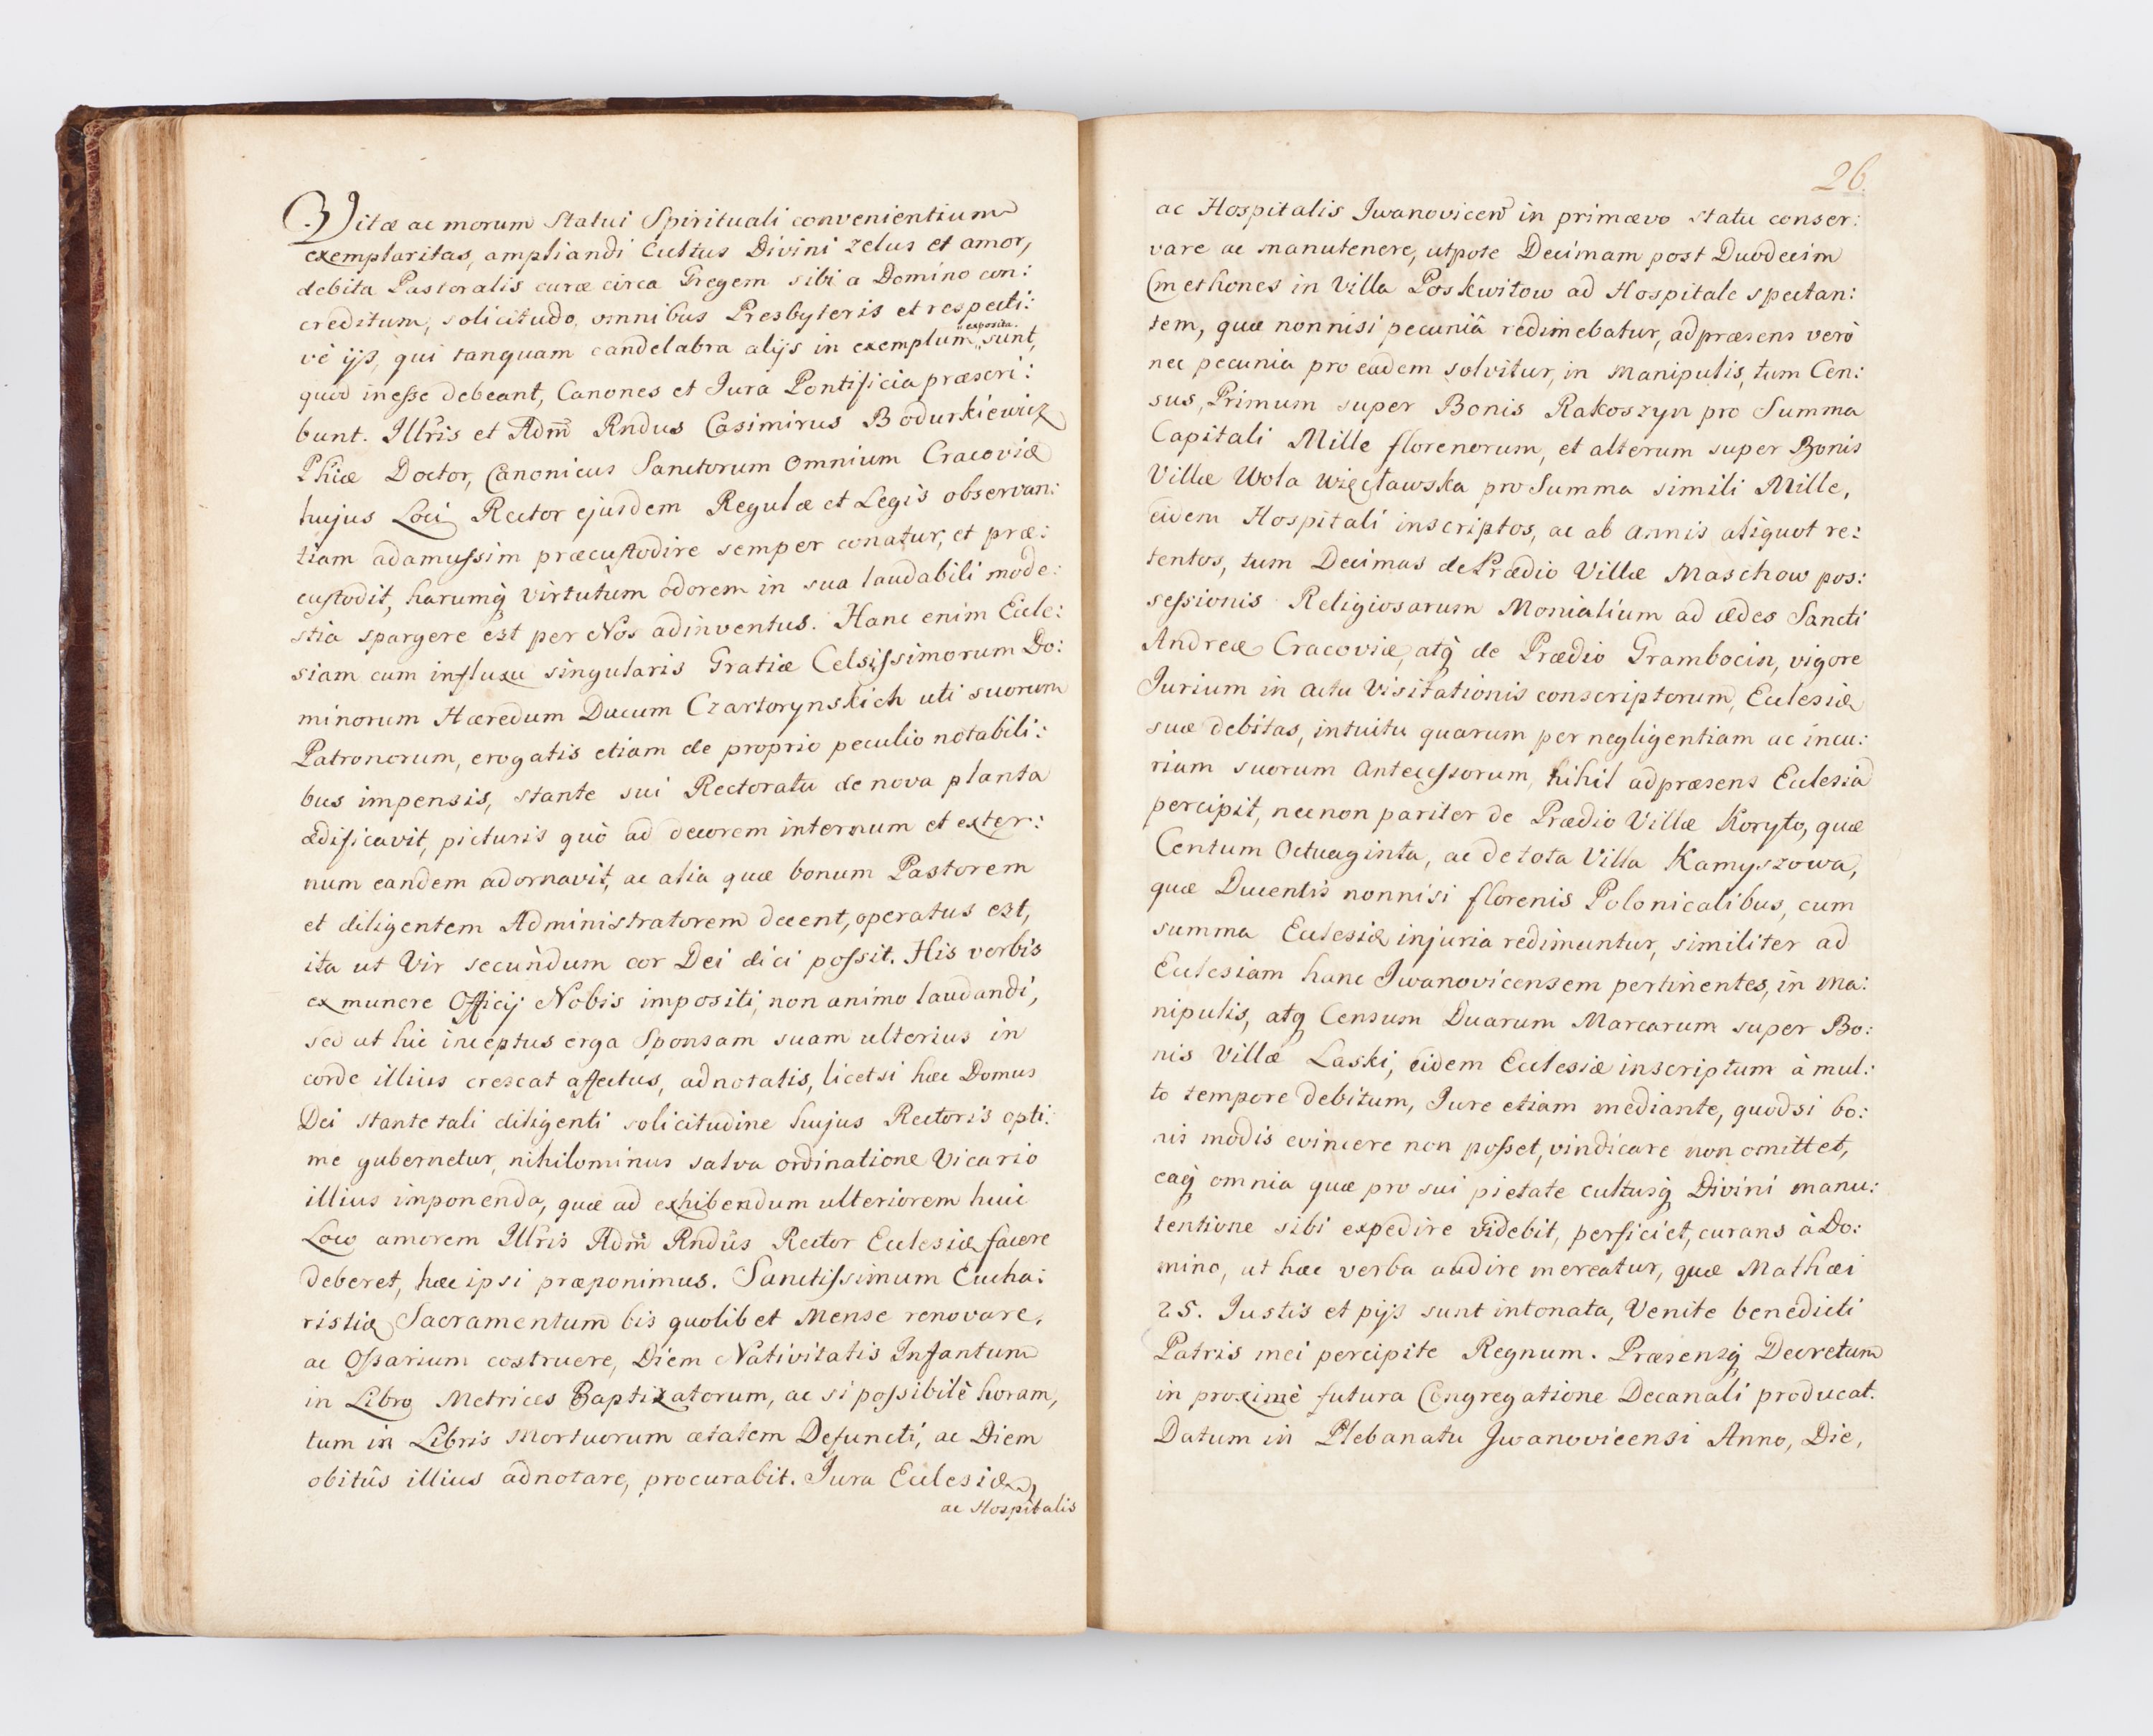 Vitæ ac morum Statui Spirituali convenientium
exemplaritas, ampliandi Cultus Divini zelus et amor,
debita Pastoralis curæ circa Gregem sibi a Domino con:
creditum, solicitudo, omnibus Presbyteris et respecti:
vè ijs, qui tanquam candelabra alijs in exemplum „exposita„ sunt,
quod inesse debeant, Canones et Jura Pontificia præscri:
bunt. Illr̃is et Adm̃ Rndus Casimirus Bodurkiewicz
Phiæ Doctor, Canonicus Sanctorum Omnium Cracoviæ
hujus Loci Rector ejusdem Regulæ et Legis observan:
tiam adamussim præcustodire semper conatur, et præ:
custodit, harumq̀ virtutum odorem in sua laudabili mode:
stia spargere est per Nos adinventus. Hanc enim Eccle:
siam cum influxu singularis Gratiæ Celsissimorum Do:
minorum Hæredum Ducum Czartorynskich uti suorum
Patronorum, erogatis etiam de proprio peculio notabili:
bus impensis, stante sui Rectoratu de nova planta
ædificavit, picturis quò ad decorem internum et exter:
num eandem adornavit, ac alia quæ bonum Pastorem
et diligentem Administratorem decent, operatus est,
ita ut Vir secundum cor Dei dici possit. His verbis
ex munere Officij Nobis impositi, non animo laudandi,
sed ut hic inceptus erga Sponsam suam ulterius in
corde illius crescat affectus, adnotatis, licetsi hæc Domus
Dei stante tali diligenti solicitudine hujus Rectoris opti:
me gubernetur, nihilominus salva ordinatione Vicario
illius imponenda, quæ ad exhibendum ulteriorem huic
Loco amorem Illr̃is Adm̃ Rndus Rector Ecclesiæ facere
deberet, hæc ipsi præponimus. Sanctissimum Eucha:
ristiæ Sacramentum bis quolibet Mense renovare,
ac Ossarium costruere, Diem Nativitatis Infantum
in Libro Metrices Baptizatorum, ac si possibilè horam,
tum in Libris Mortuorum ætatem Defuncti, ac Diem
obitûs illius adnotare, procurabit. Jura Ecclesiæ
ac Hospitalis
26.
ac Hospitalis Jwanovicen̄ in primævo statu conser:
vare ac manutenere, utpote Decimam post Duodecim
Cmethones in Villa Poskwitow ad Hospitale spectan:
tem, quæ nonnisi pecuniâ redimebatur, adpræsens verò
nec pecunia pro eadem solvitur, in Manipulis, tum Cen:
sus, Primum super Bonis Rakoszyn pro Summa
Capitali Mille florenorum, et alterum super Bonis
Villæ Wola Więcławska pro Summa simili Mille,
eidem Hospitali inscriptos, ac ab annis aliquot re:
tentos, tum Decimas de Prædio Villæ Maschow pos:
sessionis Religiosarum Monialium ad ædes Sancti
Andreæ Cracoviæ, atq̀ de Prædio Grambocin, vigore
Jurium in actu Visitationis conscriptorum, Ecclesiæ
suæ debitas, intuitu quarum per negligentiam ac incu:
riam suorum Antecessorum, nihil adpræsens Ecclesia
percipit, necnon pariter de Prædio Villæ Koryto, quæ
Centum Octuaginta, ac de tota Villa Kamyszowa,
quæ Ducentis nonnisi florenis Polonicalibus, cum
summa Ecclesiæ injuria redimuntur, similiter ad
Ecclesiam hanc Jwanovicensem pertinentes, in Ma:
nipulis, atq̀ Censum Duarum Marcarum super Bo:
nis Villæ Laski, eidem Ecclesiæ inscriptum à mul:
to tempore debitum, Jure etiam mediante, quodsi bo:
nis modis evincere non posset, vindicare non omittet,
eaq̀ omnia quæ pro sui pietate cultusq̀ Divini manu:
tentione sibi expedire videbit, perficiet, curans à Do:
mino, ut hæc verba audire mereatur, quæ Mathæi
25. Justis et pijs sunt intonata, Venite benedicti
Patris mei percipite Regnum. Præsensq̀ Decretum
in proximè futura Congregatione Decanali producat.
Datum in Plebanatu Jwanovicensi Anno, Die,